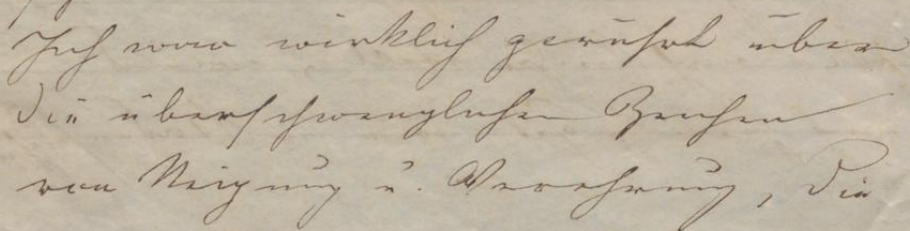 Ich war wirklich gerührt über
die überschwenglichen Zeichen
von Neigung u. Verehrung, die